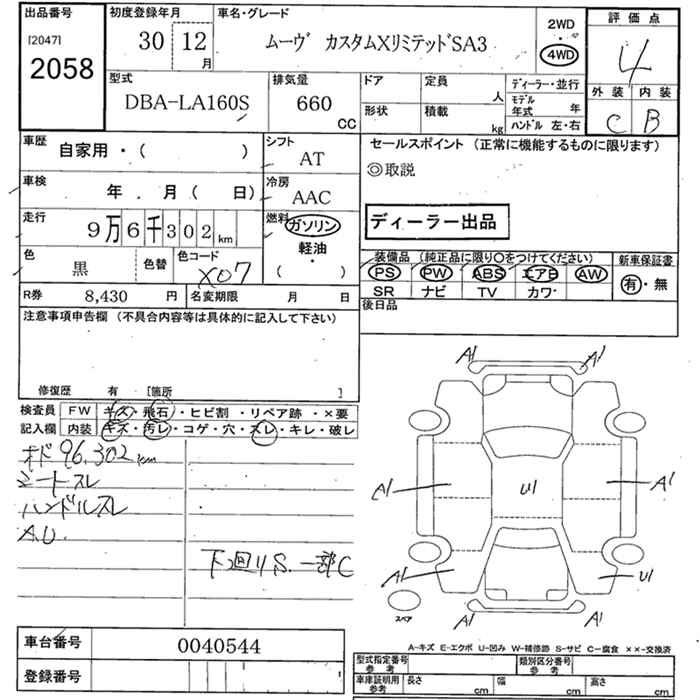 出品番号 初度登録年月 車名・グレード 2WD ・ 4WD 評価点
[2047] 2058 30 12月 ムーヴ カスタムXリミテッドSA3 4
型式 排気量 ドア 定員 人 ディーラー・並行 外装 内装
DBA-LA160S 660 CC 形状 積載 kg モデル年式 年 C B
ハンドル 左・右
車歴 自家用・( ) シフト AT セールスポイント (正常に機能するものに限ります)
◎取説
車検 年 月( 日) 冷房 AAC
走行 9万6千302km 燃料 ガソリン ディーラー出品
軽油
・
( )
色 黒 色替 色コード X07 装備品 (純正品に限り○をつけてください) 新車保証書
PS PW ABS エアB AW 有・無
SR ナビ TV カワ
R券 8,430 円 名変期限 月 日 後日品
注意事項申告欄 (不具合内容等は具体的に記入して下さい)
修復歴 有 [箇所 ]
検査員 FW キズ・飛石・ヒビ割・リペア跡・×要
記入欄 内装 キズ・汚レ・コゲ・穴・スレ・キレ・破レ
オド 96,302km
シートスレ
ハンドルスレ
A.U.
下廻りS.一部C
A1 A1
A1 U1 A1
A1 U1
A1 A1
スペア
A-キズ E-エクボ U-凹み W-補修跡 S-サビ C-腐食 ××-交換済
車台番号 0040544
登録番号
型式指定番号 参考 類別区分番号 参考
車庫証明用 参考 長さ cm 幅 cm 高さ cm